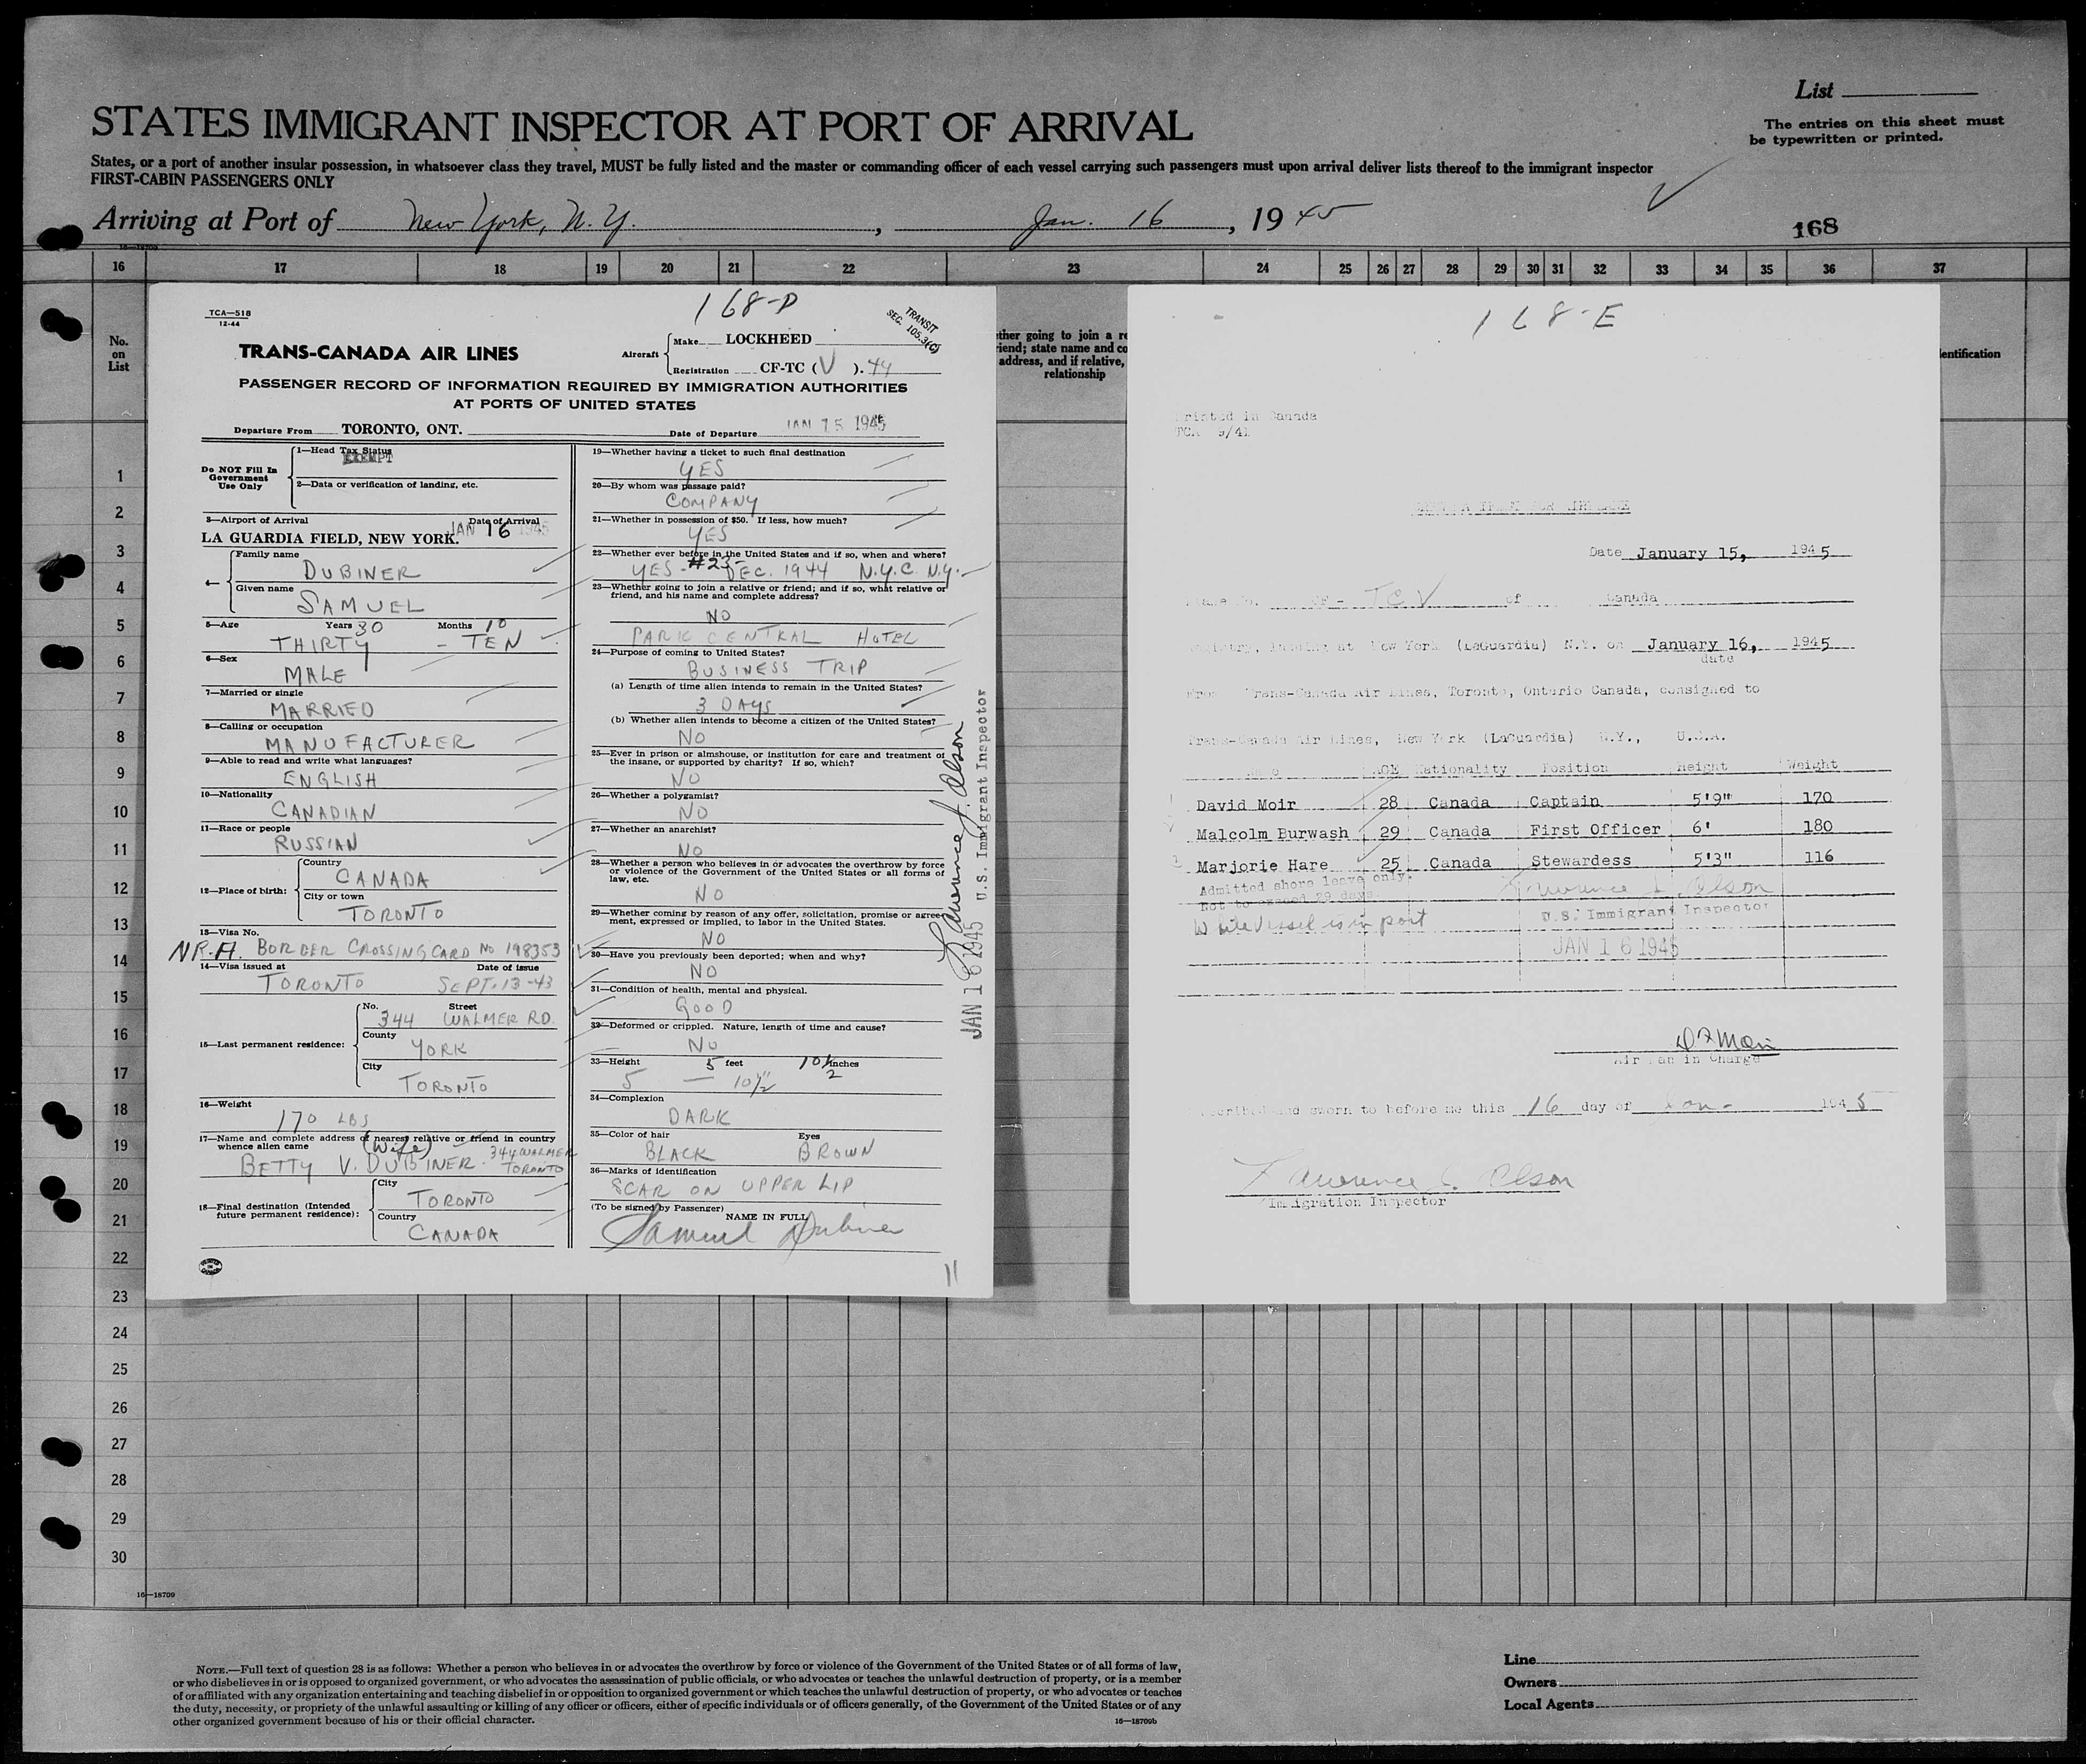 List
The entries on this sheet must
be typewritten or printed.
STATES IMMIGRANT INSPECTOR AT PORT OF ARRIVAL
States, or a port of another insular possession, in whatsoever class they travel, MUST be fully listed and the master or commanding officer of each vessel carrying such passengers must upon arrival deliver lists thereof to the immigrant inspector
FIRST-CABIN PASSENGERS ONLY
Arriving at Port of New York, N. Y., Jan. 16, 1945
168
16—18709
16 17 18 19 20 21 22 23 24 25 26 27 28 29 30 31 32 33 34 35 36 37
No.
on
List
ther going to join a re
riend; state name and co
address, and if relative,
relationship
entification
1
2
3
4
5
6
7
8
9
10
11
12
13
14
15
16
17
18
19
20
21
22
23
24
25
26
27
28
29
30
16—18709
168-D
TCA—518
12-44
TRANSIT
SEC. 105.3(C)
TRANS-CANADA AIR LINES
Aircraft
Make LOCKHEED
Registration CF-TC (V). 44
PASSENGER RECORD OF INFORMATION REQUIRED BY IMMIGRATION AUTHORITIES
AT PORTS OF UNITED STATES
Departure From TORONTO, ONT. Date of Departure JAN 15 1945
Do NOT Fill In
Government
Use Only
1—Head Tax Status
EXEMPT
2—Data or verification of landing, etc.
3—Airport of Arrival Date of Arrival
LA GUARDIA FIELD, NEW YORK. JAN 16 1945
4—
Family name
DUBINER
Given name
SAMUEL
5—Age Years 30 Months 10
THIRTY - TEN
6—Sex
MALE
7—Married or single
MARRIED
8—Calling or occupation
MANUFACTURER
9—Able to read and write what languages?
ENGLISH
10—Nationality
CANADIAN
11—Race or people
RUSSIAN
12—Place of birth:
Country
CANADA
City or town
TORONTO
13—Visa No.
N.R.A. BORDER CROSSING CARD NO 198353
14—Visa issued at Date of issue
TORONTO SEPT. 13-43
15—Last permanent residence:
No. Street
344 WALMER RD.
County
YORK
City
TORONTO
16—Weight
170 LBS
17—Name and complete address of nearest relative or friend in country
whence alien came
(Wife)
BETTY V. DUBINER. 344 WALMER
TORONTO
18—Final destination (Intended
future permanent residence):
City
TORONTO
Country
CANADA
19—Whether having a ticket to such final destination
YES
20—By whom was passage paid?
COMPANY
21—Whether in possession of $50. If less, how much?
YES
22—Whether ever before in the United States and if so, when and where?
YES - #23- DEC. 1944 N.Y.C. N.Y.
23—Whether going to join a relative or friend; and if so, what relative or
friend, and his name and complete address?
NO
PARK CENTRAL HOTEL
24—Purpose of coming to United States?
BUSINESS TRIP
(a) Length of time alien intends to remain in the United States?
3 DAYS
(b) Whether alien intends to become a citizen of the United States?
NO
25—Ever in prison or almshouse, or institution for care and treatment of
the insane, or supported by charity? If so, which?
NO
26—Whether a polygamist?
NO
27—Whether an anarchist?
NO
28—Whether a person who believes in or advocates the overthrow by force
or violence of the Government of the United States or all forms of
law, etc.
NO
29—Whether coming by reason of any offer, solicitation, promise or agree-
ment, expressed or implied, to labor in the United States.
NO
30—Have you previously been deported; when and why?
NO
31—Condition of health, mental and physical.
GOOD
32—Deformed or crippled. Nature, length of time and cause?
NO
33—Height 5 feet 10½ inches
5 — 10½"
34—Complexion
DARK
35—Color of hair Eyes
BLACK BROWN
36—Marks of identification
SCAR ON UPPER LIP
(To be signed by Passenger)
NAME IN FULL
Samuel Dubiner
11
Lawrence J. Olson
JAN 16 1945 U.S. Immigrant Inspector
168-E
Printed in Canada
TCA 9/41
Date January 15, 1945
CF- TCV of Canada
registry, landing at New York (LaGuardia) N.Y. on January 16, 1945
date
From Trans-Canada Air Lines, Toronto, Ontario Canada, consigned to
Trans-Canada Air Lines, New York (LaGuardia) N.Y., U.S.A.
Name AGE Nationality Position Height Weight
David Moir 28 Canada Captain 5'9" 170
Malcolm Burwash 29 Canada First Officer 6' 180
Marjorie Hare 25 Canada Stewardess 5'3" 116
Admitted shore leave only.
Not to exceed 29 days
While Vessel is in port
Lawrence J. Olson
U.S. Immigrant Inspector
JAN 16 1945
Air Man in Charge
Subscribed and sworn to before me this 16 day of Jan- 1945
Lawrence J. Olson
Immigration Inspector
NOTE.—Full text of question 28 is as follows: Whether a person who believes in or advocates the overthrow by force or violence of the Government of the United States or of all forms of law,
or who disbelieves in or is opposed to organized government, or who advocates the assassination of public officials, or who advocates or teaches the unlawful destruction of property, or is a member
of or affiliated with any organization entertaining and teaching disbelief in or opposition to organized government or which teaches the unlawful destruction of property, or who advocates or teaches
the duty, necessity, or propriety of the unlawful assaulting or killing of any officer or officers, either of specific individuals or of officers generally, of the Government of the United States or of any
other organized government because of his or their official character.
16—18709b
Line
Owners
Local Agents